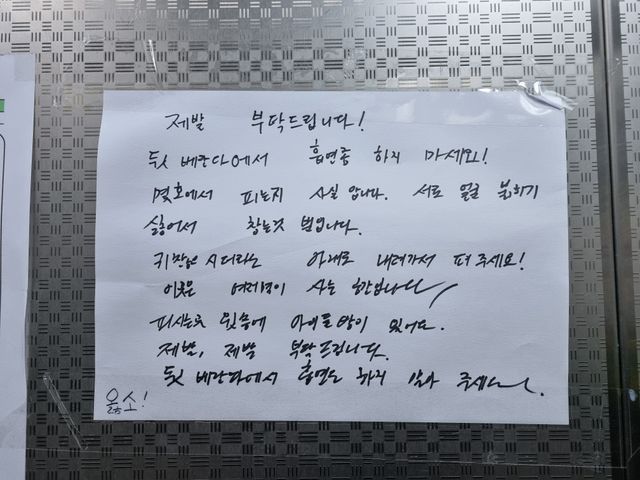 제발 부탁드립니다!
뒷 베란다에서 흡연좀 하지 마세요!
몇호에서 피는지 사실 압니다. 서로 얼굴 붉히기
싫어서 참는것 뿐입니다.
귀찮은 시더라도 아래로 내려가서 펴 주세요!
이웃은 여러명이 사는
피시는 윗층에 아이들 많이 있어요.
제발, 제발 부탁드립니다.
뒷 베란다에서 흡연은 하지 말아 주세요.
옳소!